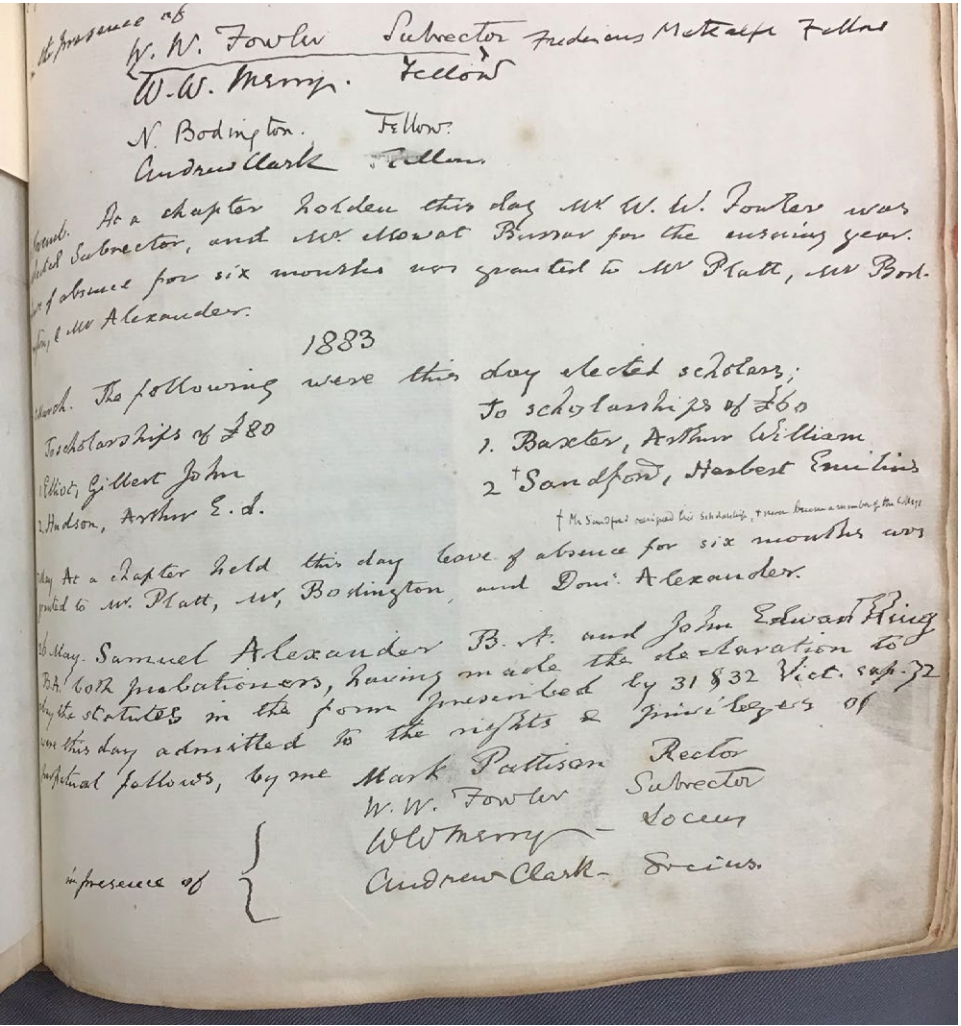 presence of
W. W. Fowler Subrector Fredericus Metcalfe Fellow
W. W. Merry. Fellow
N. Bodington. Fellow.
Andrew Clark Fellow.
At a chapter holden this day Mr W. W. Fowler was
Subrector, and Mr. Mowat Bursar for the ensuing year.
of absence for six months was granted to Mr Platt, Mr Bod-
& Mr Alexander.
1883
March. The following were this day elected scholars;
To scholarships of £80
1 Elliot, Gilbert John
2. Hudson, Arthur E. J.
To scholarships of £60
1. Baxter, Arthur William
2 †Sandford, Herbert Emilius
† Mr Sandford resigned his scholarship, & never became a member of the College
May At a chapter held this day leave of absence for six months was
granted to Mr. Platt, Mr, Bodington, and Domˢ. Alexander.
26 May. Samuel Alexander B. A. and John Edward King
B.A. both probationers, having made the declaration to
the statutes in the form prescribed by 31 & 32 Vict. cap. 72
were this day admitted to the rights & privileges of
perpetual fellows, by me Mark Pattison Rector
W. W. Fowler Subrector
W W Merry – Socius
in presence of
Andrew Clark – Socius.